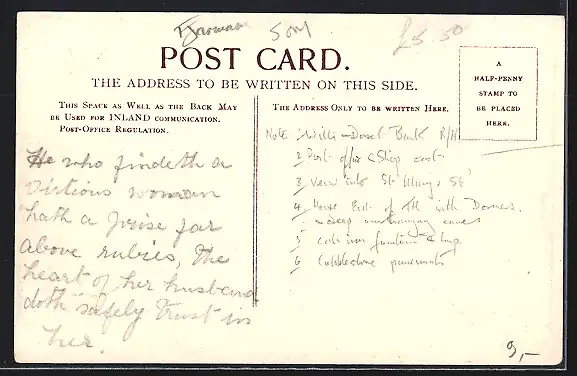 £5.50
POST CARD.
THE ADDRESS TO BE WRITTEN ON THIS SIDE.
A
HALF-PENNY
STAMP TO
BE PLACED
HERE.
THIS SPACE AS WELL AS THE BACK MAY
BE USED FOR INLAND COMMUNICATION.
POST-OFFICE REGULATION.
He who findeth a
virtious woman
hath a prise far
above rubies, the
heart of her husband
doth safely trust in
her.
THE ADDRESS ONLY TO BE WRITTEN HERE.
Note 1 Wilts & Dorset Bank
2 Post office & Shop
3 View into St Marys St
4 House with Dormers.
5 fountain & lamp.
6 Cobblestone pavements
9,-